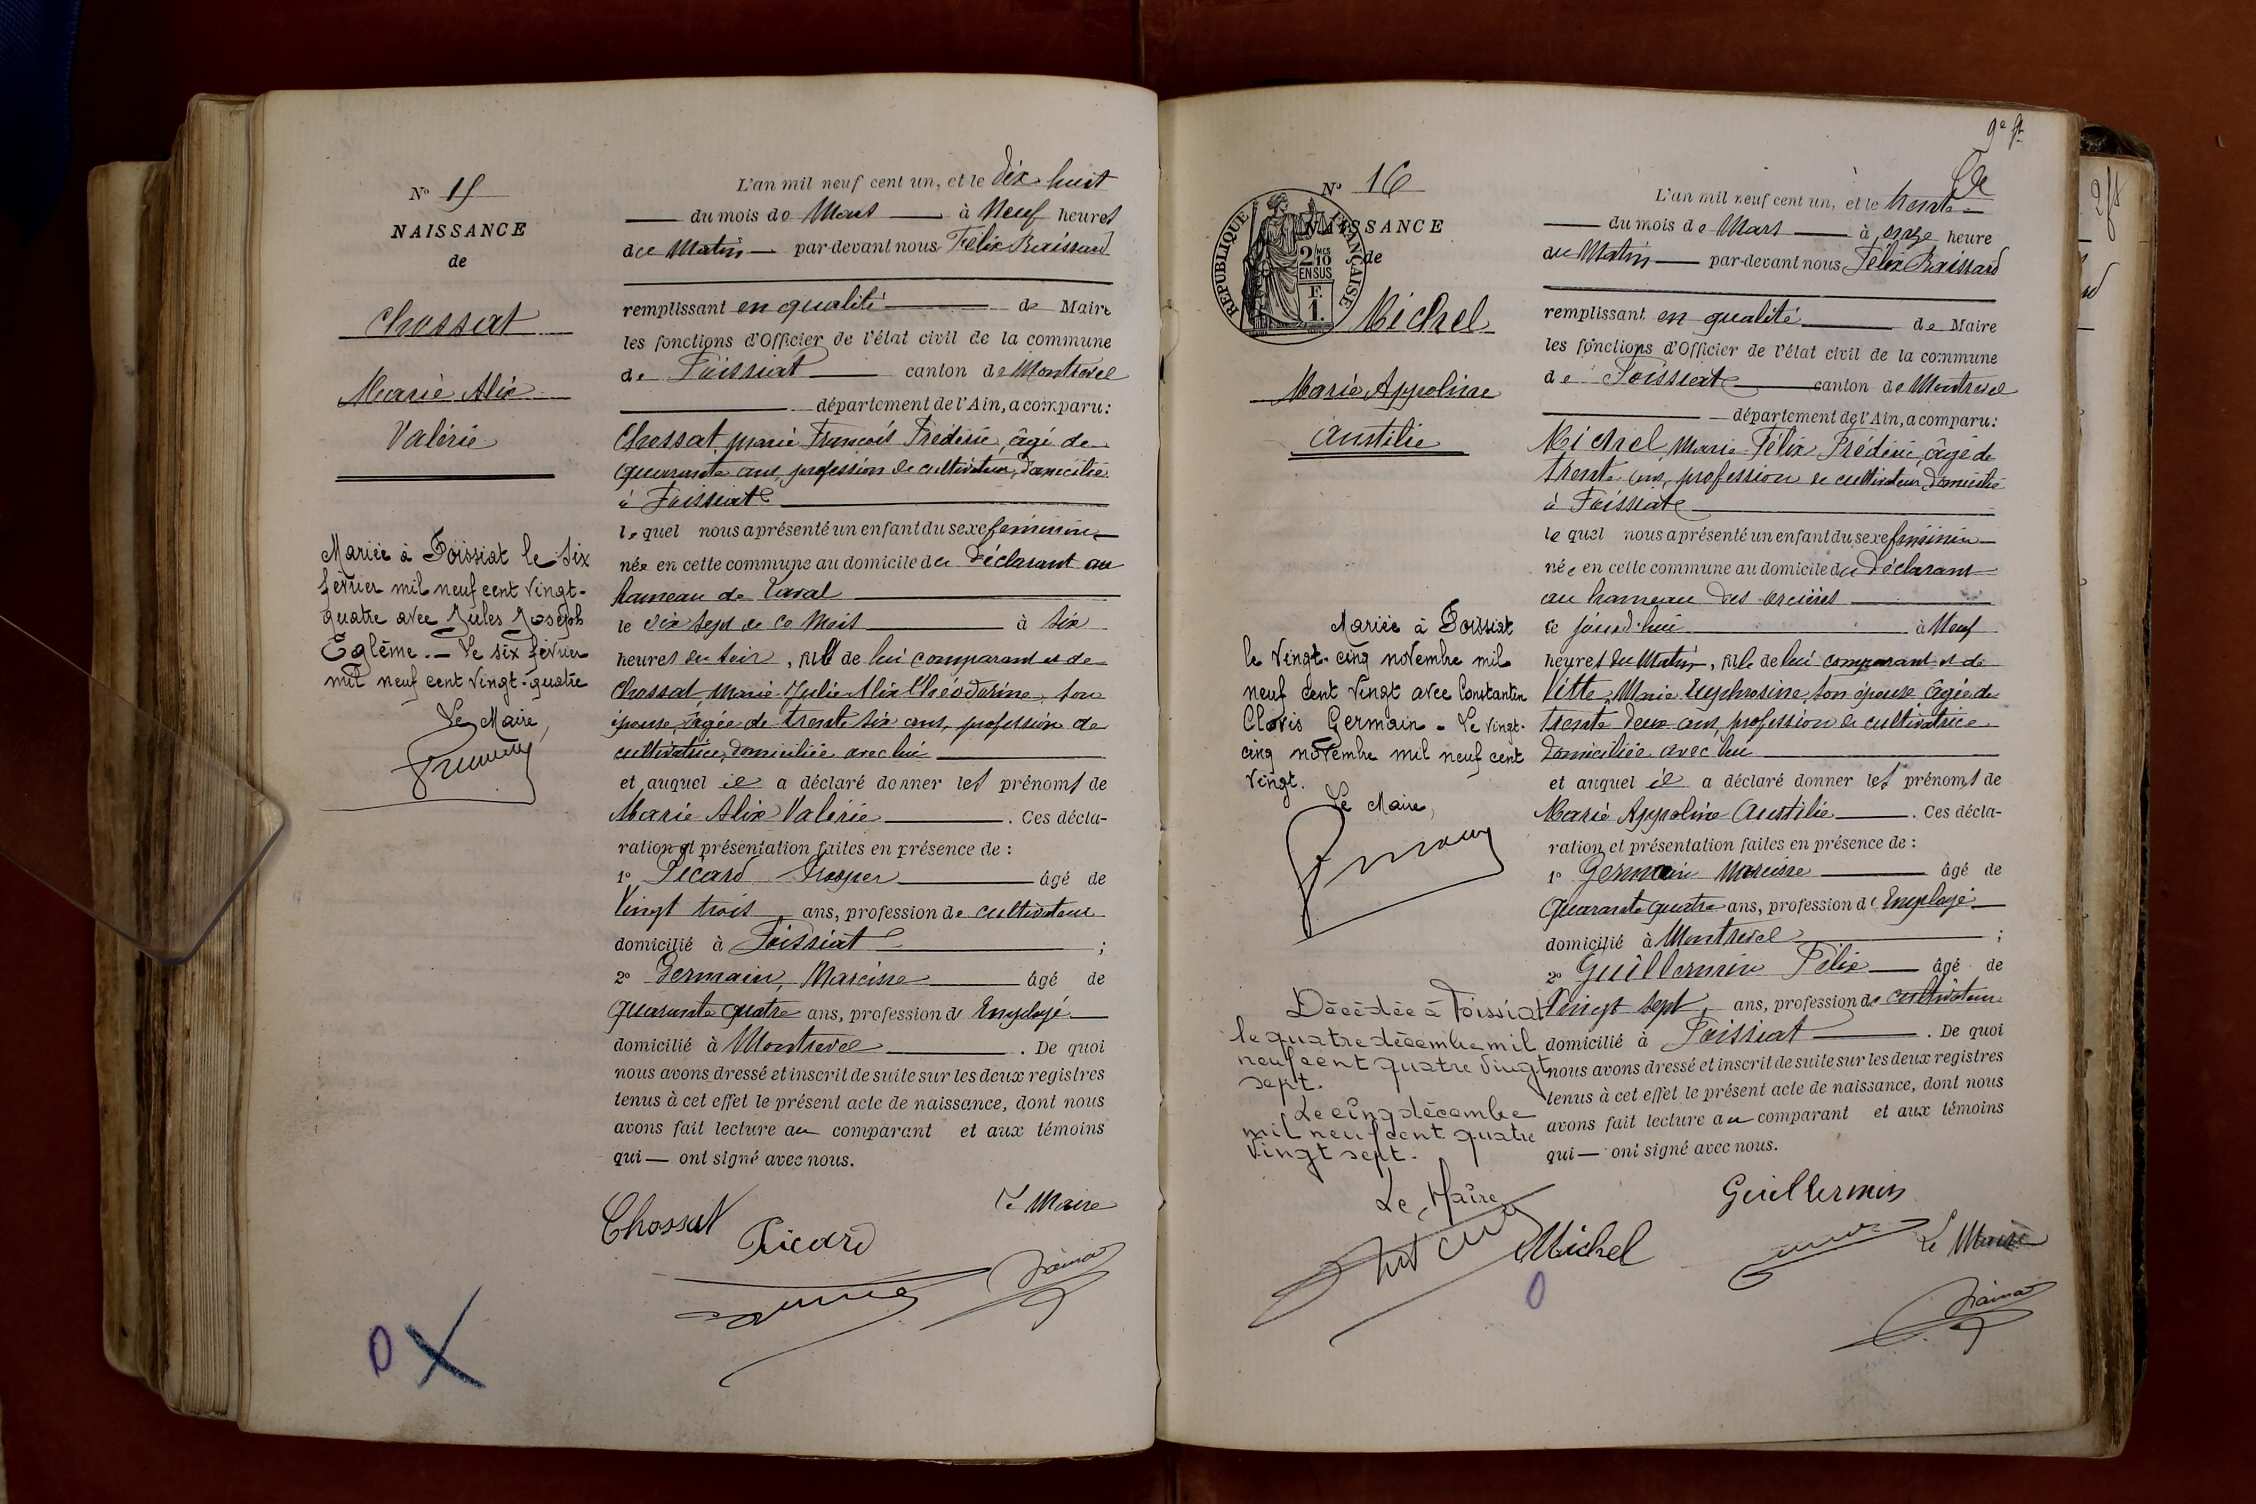 N° 15
NAISSANCE
de
Chossat
Marie Alix
Valérie
Mariée à Foissiat le six
février mil neuf cent vingt-
quatre avec Jules Joseph
Eglême. — Le six février
mil neuf cent vingt-quatre
Le Maire,
L'an mil neuf cent un, et le dix huit
du mois de Mars à Neuf heures
du Matin par-devant nous Félix
remplissant en qualité de Maire
les fonctions d'Officier de l'état civil de la commune
de Foissiat canton de Montrevel
département de l'Ain, a comparu:
Chossat, Marie François Frédéric, âgé de
quarante ans, profession de cultivateur, domicilié
à Foissiat
lequel nous a présenté un enfant du sexe féminin
née en cette commune au domicile du déclarant au
hameau de Laval
le dix sept de ce Mois à six
heures du soir, fille de lui comparant et de
Chossat, Marie Julie Alix Théodorine, son
épouse, âgée de trente six ans, profession de
cultivatrice, domiciliée avec lui
et auquel il a déclaré donner les prénoms de
Marie Alix Valérie . Ces décla-
ration et présentation faites en présence de :
1° Picard Prosper âgé de
Vingt trois ans, profession de cultivateur
domicilié à Foissiat ;
2° Germain, Narcisse âgé de
Quarante quatre ans, profession de Employé
domicilié à Montrevel . De quoi
nous avons dressé et inscrit de suite sur les deux registres
tenus à cet effet le présent acte de naissance, dont nous
avons fait lecture au comparant et aux témoins
qui — ont signé avec nous.
Chossat
Picard
Le Maire
9e ft
N° 16
NAISSANCE
de
REPUBLIQUE FRANÇAISE
2/10 EN SUS
F. 1.
Michel
Marie Appoline
Austilie
Mariée à Foissiat
le vingt-cinq novembre mil
neuf cent vingt avec Constantin
Clovis Germain. Le vingt-
cinq novembre mil neuf cent
vingt.
Le Maire,
Décédée à Foissiat
le quatre décembre mil
neuf cent quatre vingt
sept.
Le cinq décembre
mil neuf cent quatre
vingt sept.
Le Maire
L'an mil neuf cent un, et le trente
du mois de Mars à onze heure
du Matin par-devant nous Félix
remplissant en qualité de Maire
les fonctions d'Officier de l'état civil de la commune
de Foissiat canton de Montrevel
département de l'Ain, a comparu:
Michel Marie Félix Frédéric, âgé de
trente ans, profession de cultivateur, domicilié
à Foissiat
lequel nous a présenté un enfant du sexe féminin
née en cette commune au domicile du déclarant
au hameau des
ce jourd'hui à Neuf
heures du Matin, fille de lui comparant et de
Vitte, Marie Euphrosine, son épouse âgée de
trente deux ans, profession de cultivatrice
domiciliée avec lui
et auquel il a déclaré donner les prénoms de
Marie Appoline Austilie . Ces décla-
ration et présentation faites en présence de :
1° Germain Narcisse âgé de
Quarante quatre ans, profession de Employé
domicilié à Montrevel ;
2° Guillermin Félix âgé de
Vingt sept ans, profession de cultivateur
domicilié à Foissiat . De quoi
nous avons dressé et inscrit de suite sur les deux registres
tenus à cet effet le présent acte de naissance, dont nous
avons fait lecture au comparant et aux témoins
qui — ont signé avec nous.
Guillermin
Michel
Le Maire